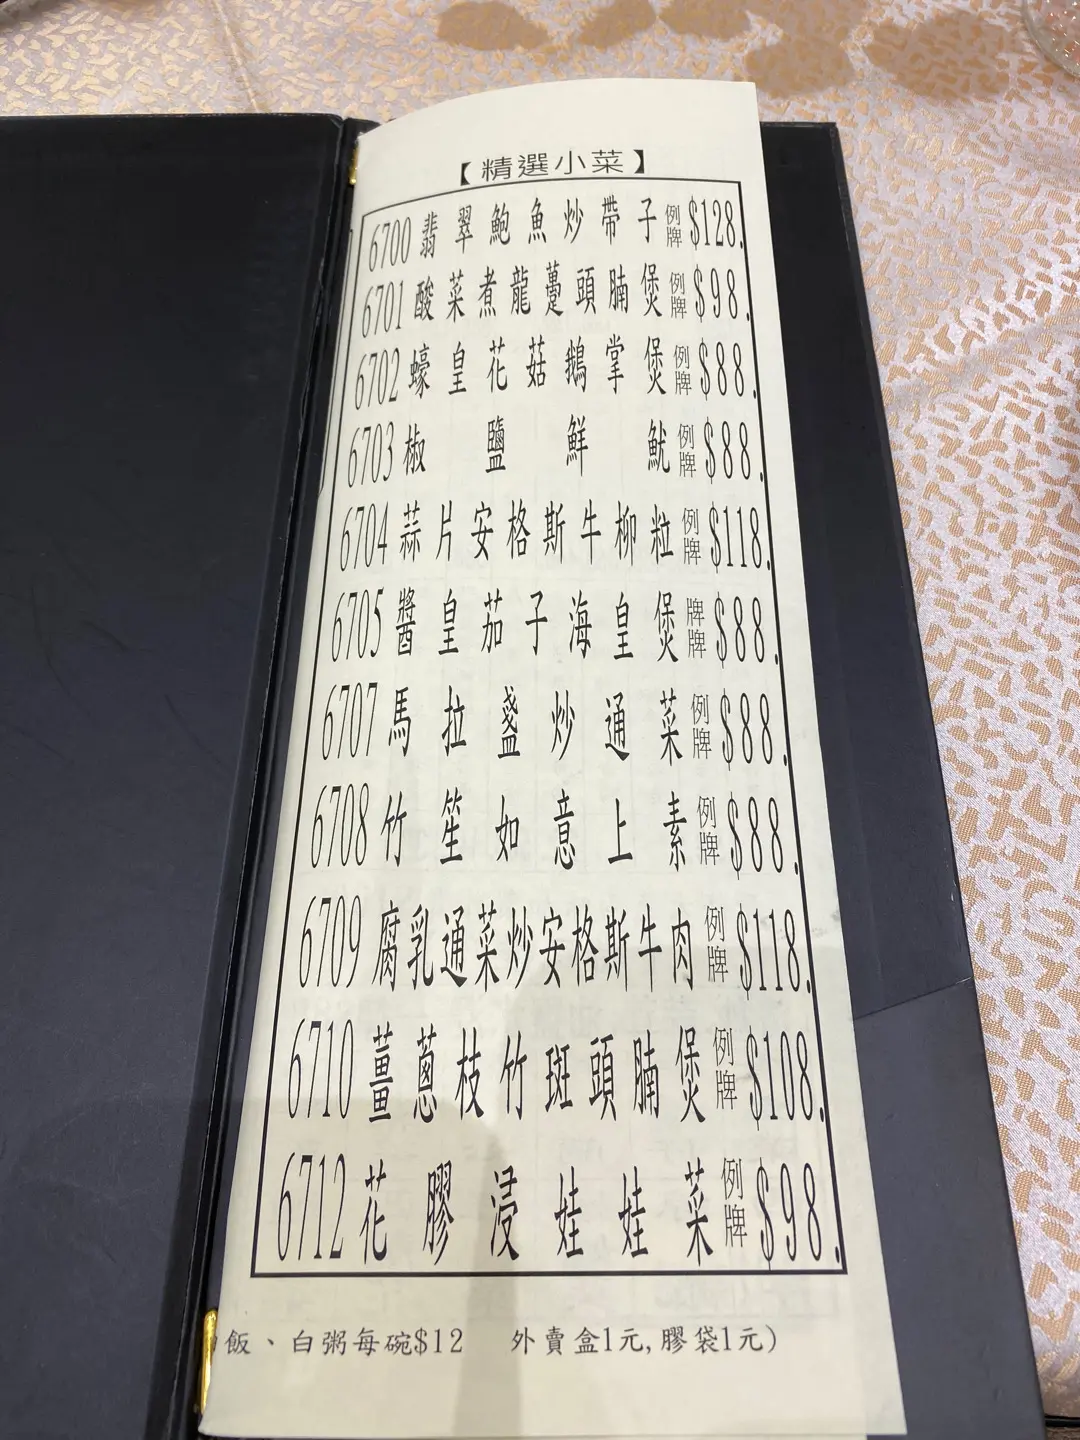 【精選小菜】
6700 翡翠鮑魚炒帶子 例牌 $128.
6701 酸菜煮龍躉頭腩煲 例牌 $98.
6702 蠔皇花菇鵝掌煲 例牌 $88.
6703 椒鹽鮮魷 例牌 $88.
6704 蒜片安格斯牛柳粒 例牌 $118.
6705 醬皇茄子海皇煲 牌牌 $88.
6707 馬拉盞炒通菜 例牌 $88.
6708 竹笙如意上素 例牌 $88.
6709 腐乳通菜炒安格斯牛肉 例牌 $118.
6710 薑蔥枝竹斑頭腩煲 例牌 $108.
6712 花膠浸娃娃菜 例牌 $98.
飯、白粥每碗$12 外賣盒1元,膠袋1元)